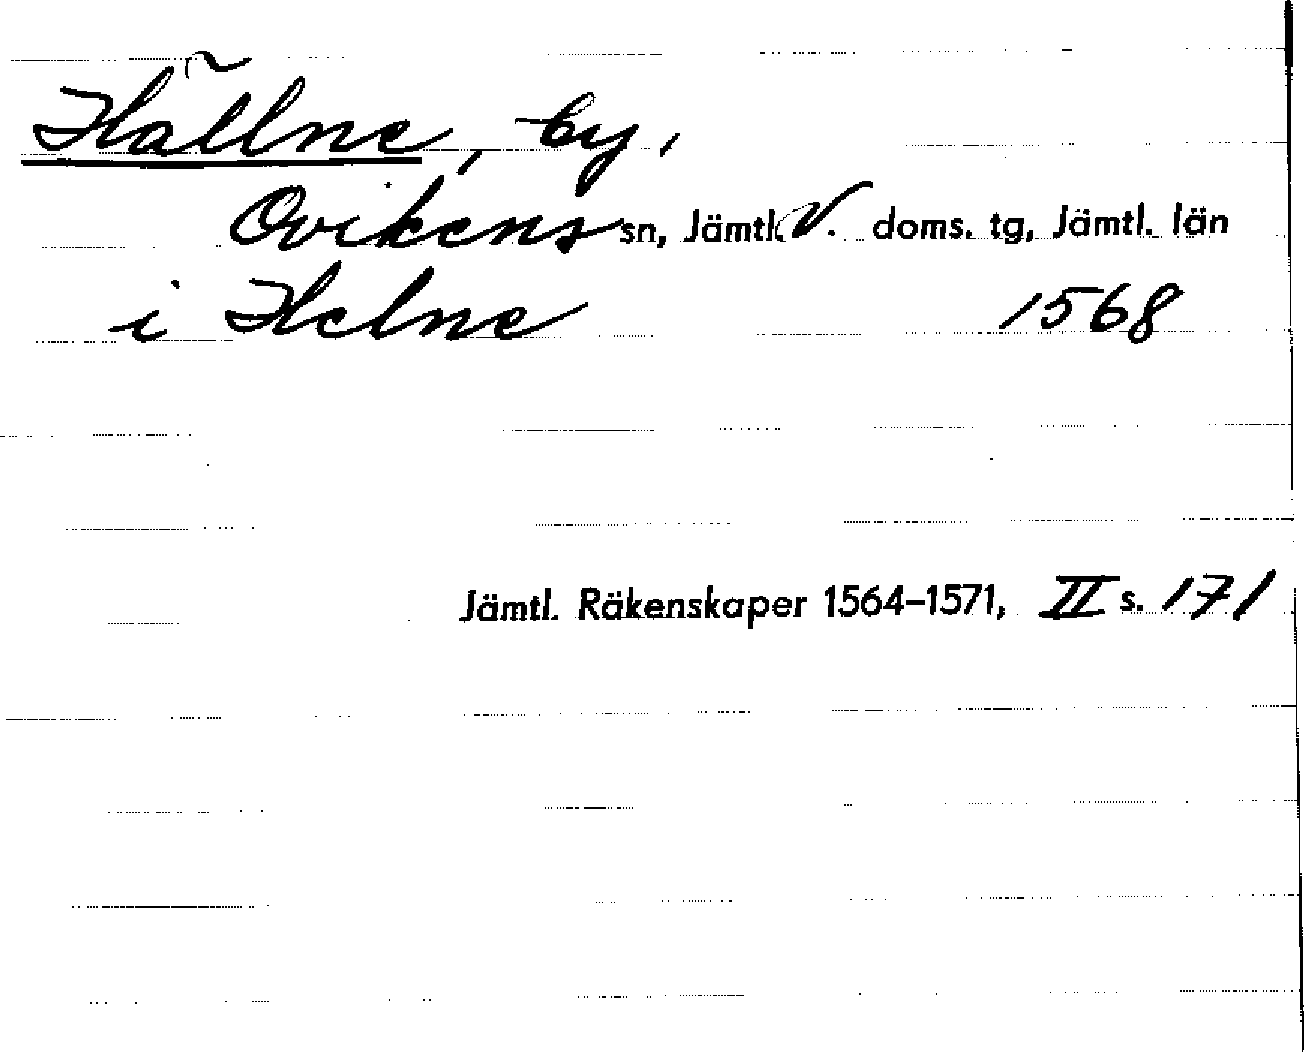 Hällne, by,
Ovikens sn, Jämtl. V. doms. tg, Jämtl. län
i Helne 1568
Jämtl. Räkenskaper 1564-1571, II s. 171